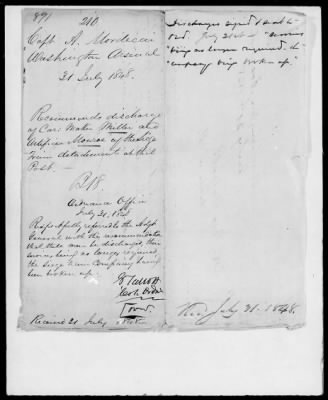 891 210
Capt A. Mordecai
Washington Arsenal
21 July 1848.
Recommends discharge
of Car: Maker Miller and
Artificer Monroe of the Siege
Train detachment at this
Post.
Ordnance Office
July 21, 1848
Respectfully referred to the Adjt
General with the recommendation
that these men be discharged, their
services being no longer required,
the Siege Train Company having
been broken up.
G Talcott
Received 21 July
Discharges signed &
July 21st "services
being no longer required, the
company being broken up."
Rec. July 21. 1848.